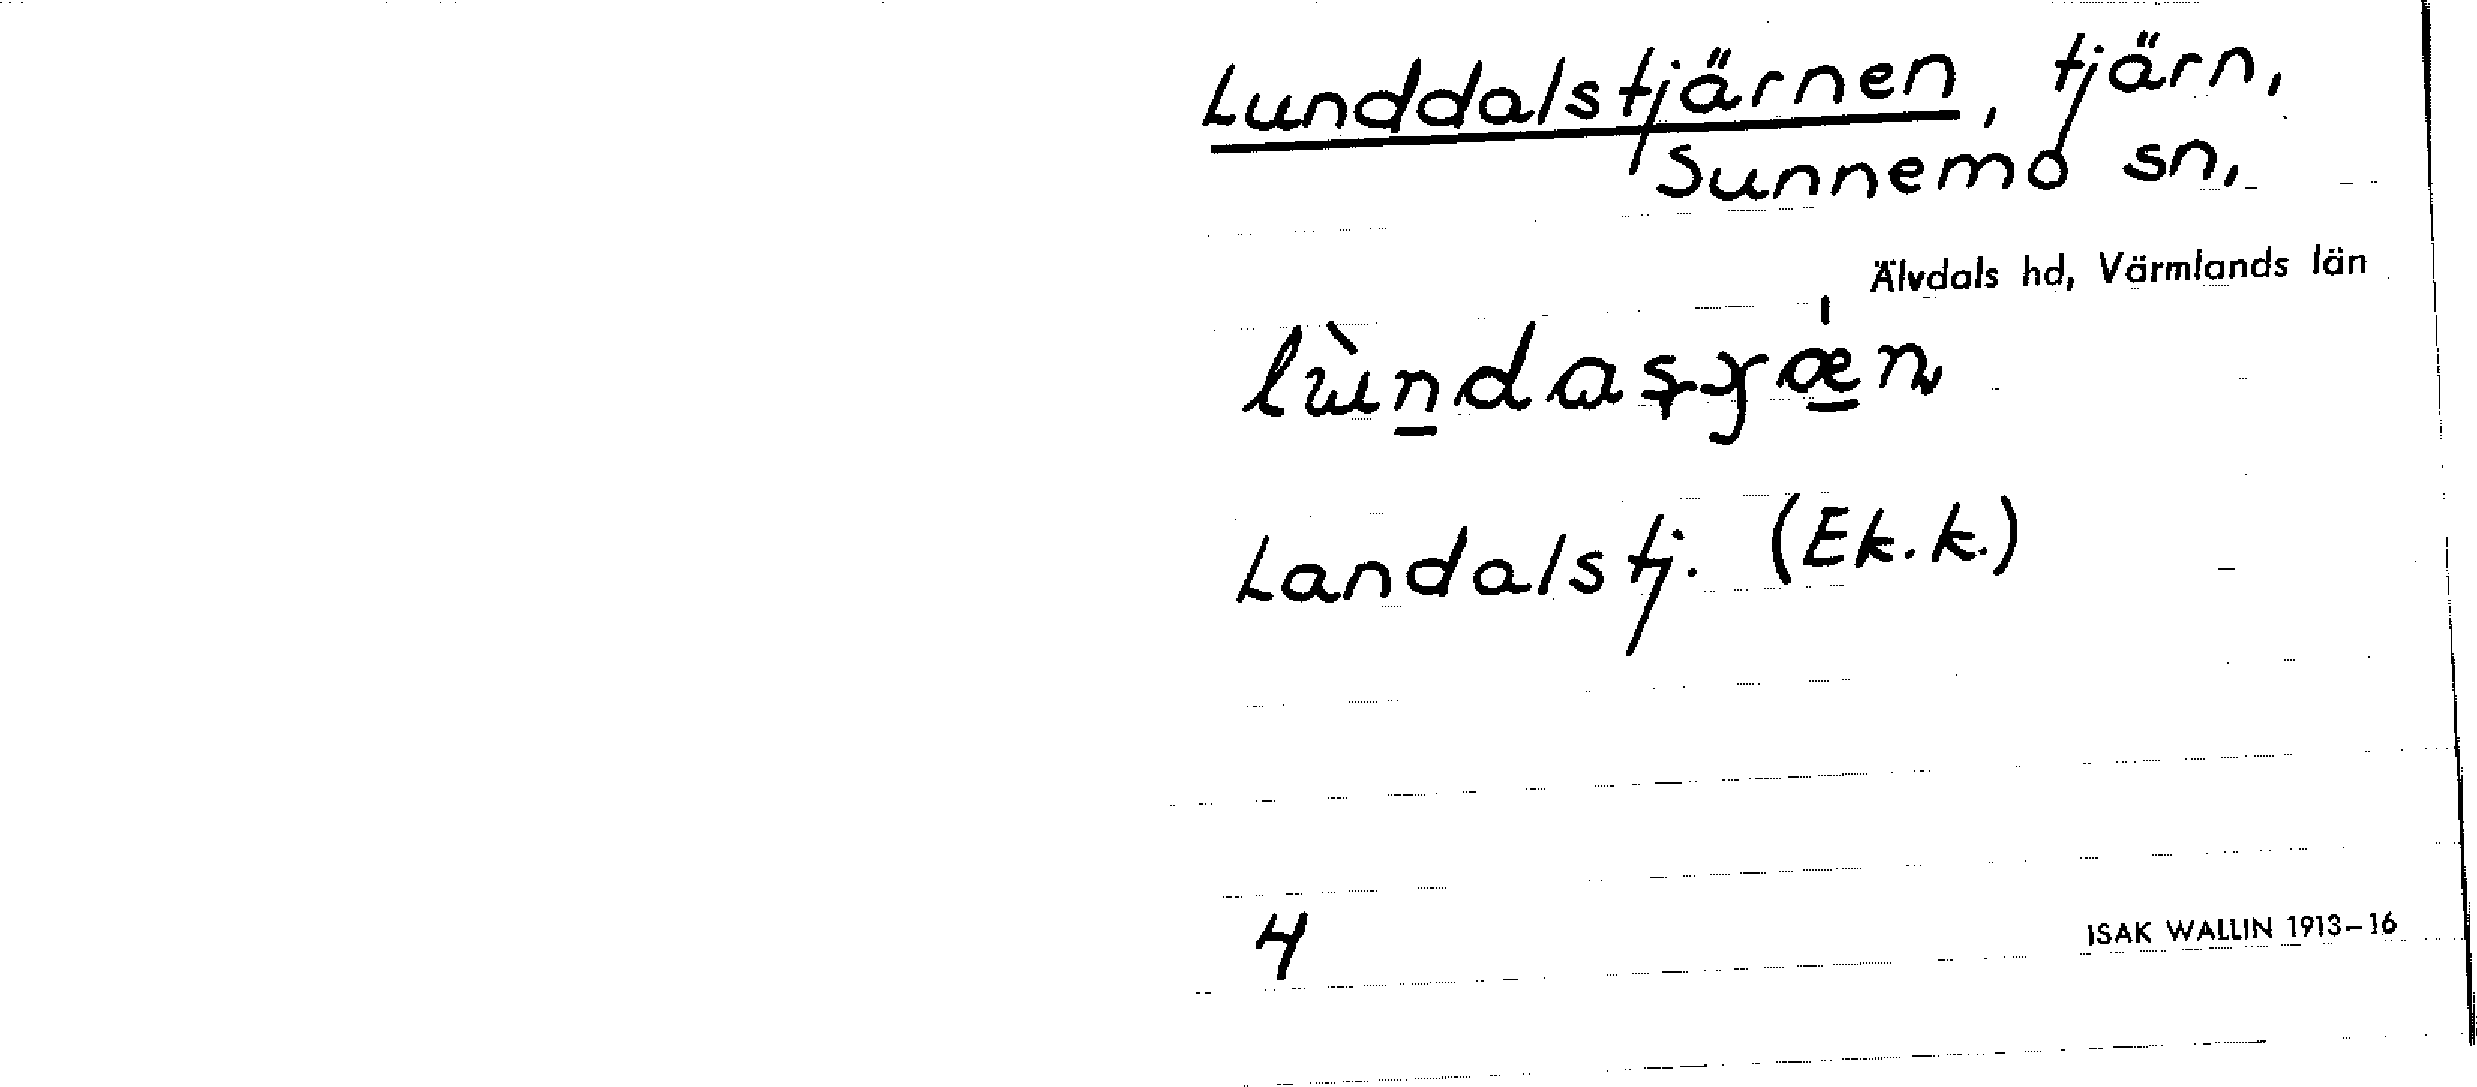 Lunddalstjärnen, tjärn,
Sunnemo sn,
Älvdals hd, Värmlands län
Landalstj. (Ek.k.)
4
ISAK WALLIN 1913–16